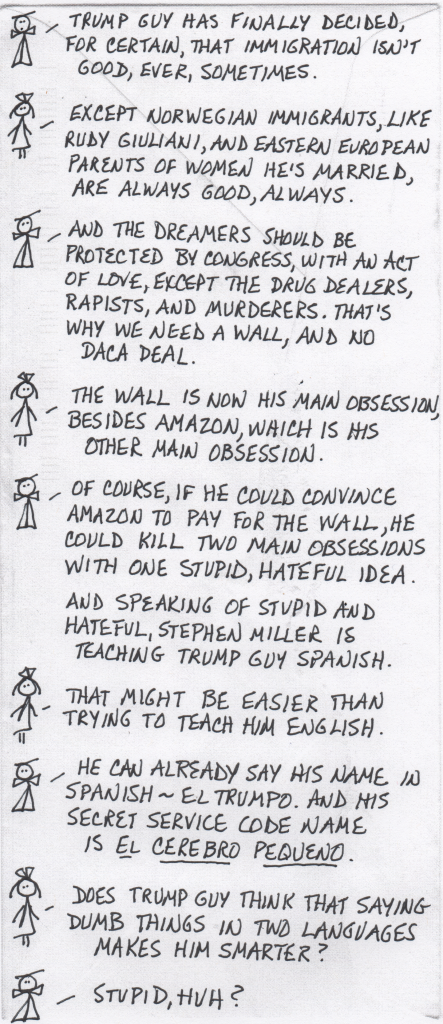 TRUMP GUY HAS FINALLY DECIDED,
FOR CERTAIN, THAT IMMIGRATION ISN'T
GOOD, EVER, SOMETIMES.
EXCEPT NORWEGIAN IMMIGRANTS, LIKE
RUDY GIULIANI, AND EASTERN EUROPEAN
PARENTS OF WOMEN HE'S MARRIED,
ARE ALWAYS GOOD, ALWAYS.
AND THE DREAMERS SHOULD BE
PROTECTED BY CONGRESS, WITH AN ACT
OF LOVE, EXCEPT THE DRUG DEALERS,
RAPISTS, AND MURDERERS. THAT'S
WHY WE NEED A WALL, AND NO
DACA DEAL.
THE WALL IS NOW HIS MAIN OBSESSION,
BESIDES AMAZON, WHICH IS HIS
OTHER MAIN OBSESSION.
OF COURSE, IF HE COULD CONVINCE
AMAZON TO PAY FOR THE WALL, HE
COULD KILL TWO MAIN OBSESSIONS
WITH ONE STUPID, HATEFUL IDEA.
AND SPEAKING OF STUPID AND
HATEFUL, STEPHEN MILLER IS
TEACHING TRUMP GUY SPANISH.
THAT MIGHT BE EASIER THAN
TRYING TO TEACH HIM ENGLISH.
HE CAN ALREADY SAY HIS NAME IN
SPANISH ~ EL TRUMPO. AND HIS
SECRET SERVICE CODE NAME
IS EL CEREBRO PEQUENO.
DOES TRUMP GUY THINK THAT SAYING
DUMB THINGS IN TWO LANGUAGES
MAKES HIM SMARTER?
STUPID, HUH?